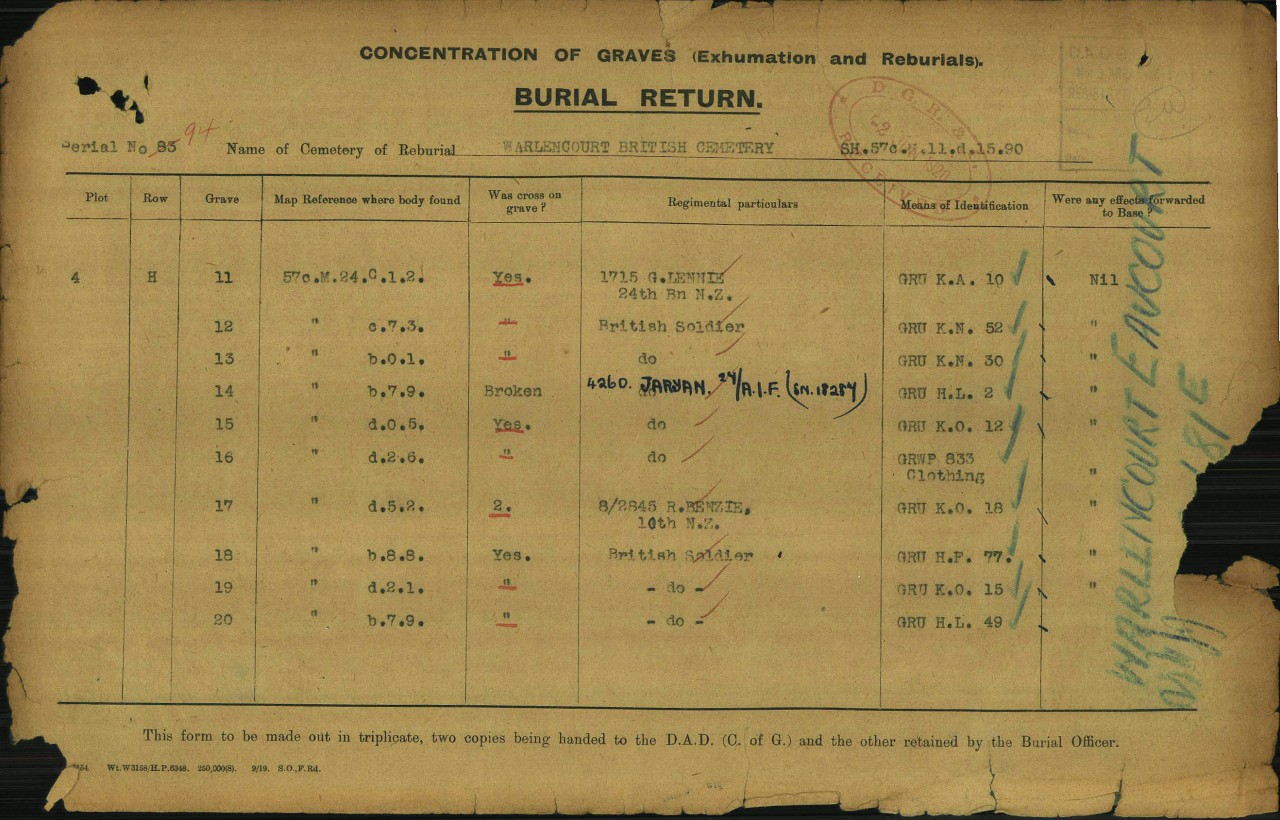 CONCENTRATION OF GRAVES (Exhumation and Reburials).
BURIAL RETURN.
Serial No 85 94 Name of Cemetery of Reburial WARLENCOURT BRITISH CEMETERY SH.57c.M.11.d.15.90
D. G. R. & E. RECEIVED 1920
Plot Row Grave Map Reference where body found Was cross on grave? Regimental particulars Means of Identification Were any effects forwarded to Base?
4 H 11 57c.M.24.C.1.2. Yes. 1715 G.LENNIE GRU K.A. 10 Nil
24th Bn N.Z.
12 " c.7.3. " British Soldier GRU K.N. 52 "
13 " b.0.1. " do GRU K.N. 30 "
14 " b.7.9. Broken do 4260. 24/A.I.F. (SN.18284) GRU H.L. 2 "
15 " d.0.5. Yes. do GRU K.O. 12 "
16 " d.2.6. " do GRWP 833 "
Clothing
17 " d.5.2. 2. 8/2845 R.BENZIE, GRU K.O. 18 "
10th N.Z.
18 " b.8.8. Yes. British Soldier GRU H.F. 77. "
19 " d.2.1. " - do - GRU K.O. 15 "
20 " b.7.9. " - do - GRU H.L. 49
WARLLINCOURT EAUCOURT
181E
This form to be made out in triplicate, two copies being handed to the D.A.D. (C. of G.) and the other retained by the Burial Officer.
Wt.W3158/H.P.6348. 250,000(8). 9/19. S.O.,F.Rd.